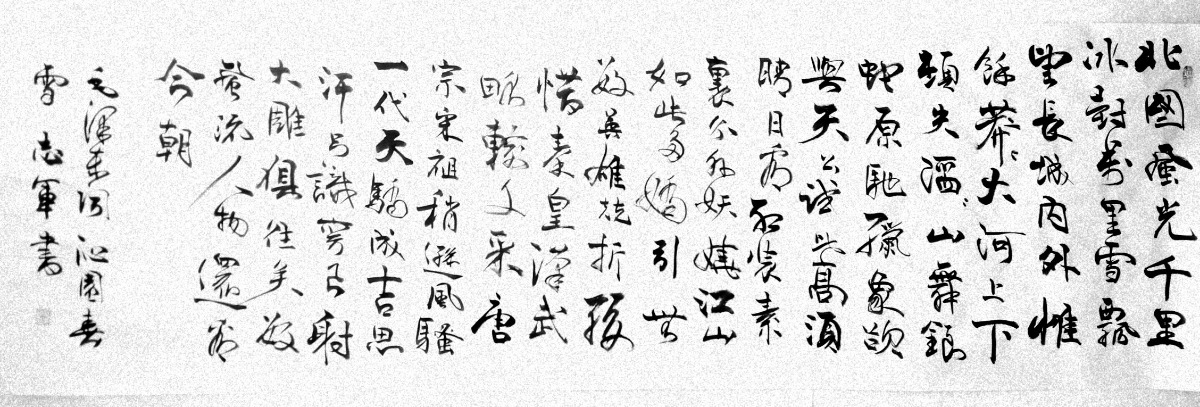 北國風光千里
冰封萬里雪飄
望長城內外惟
餘莽々大河上下
頓失滔々山舞銀
蛇原馳獵象欲
與天公試比高須
晴日看紅裝素
裹分外妖嬈江山
如此多嬌引無
數英雄競折腰
惜秦皇漢武
略輸文采唐
宗宋祖稍遜風騷
一代天驕成吉思
汗只識彎弓射
大雕俱往矣數
風流人物還看
今朝
毛澤東詞沁園春
雪 志軍書